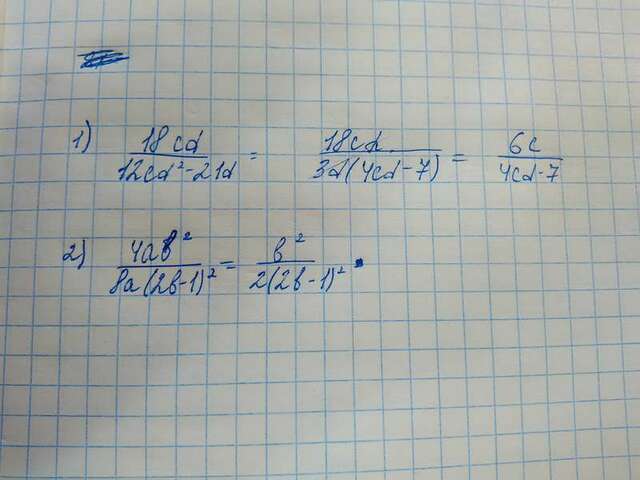 1) 18cd/(12cd²-21d) = 18cd/(3d(4cd-7)) = 6c/(4cd-7)
2) 4ab²/(8a(2b-1)²) = b²/(2(2b-1)²)